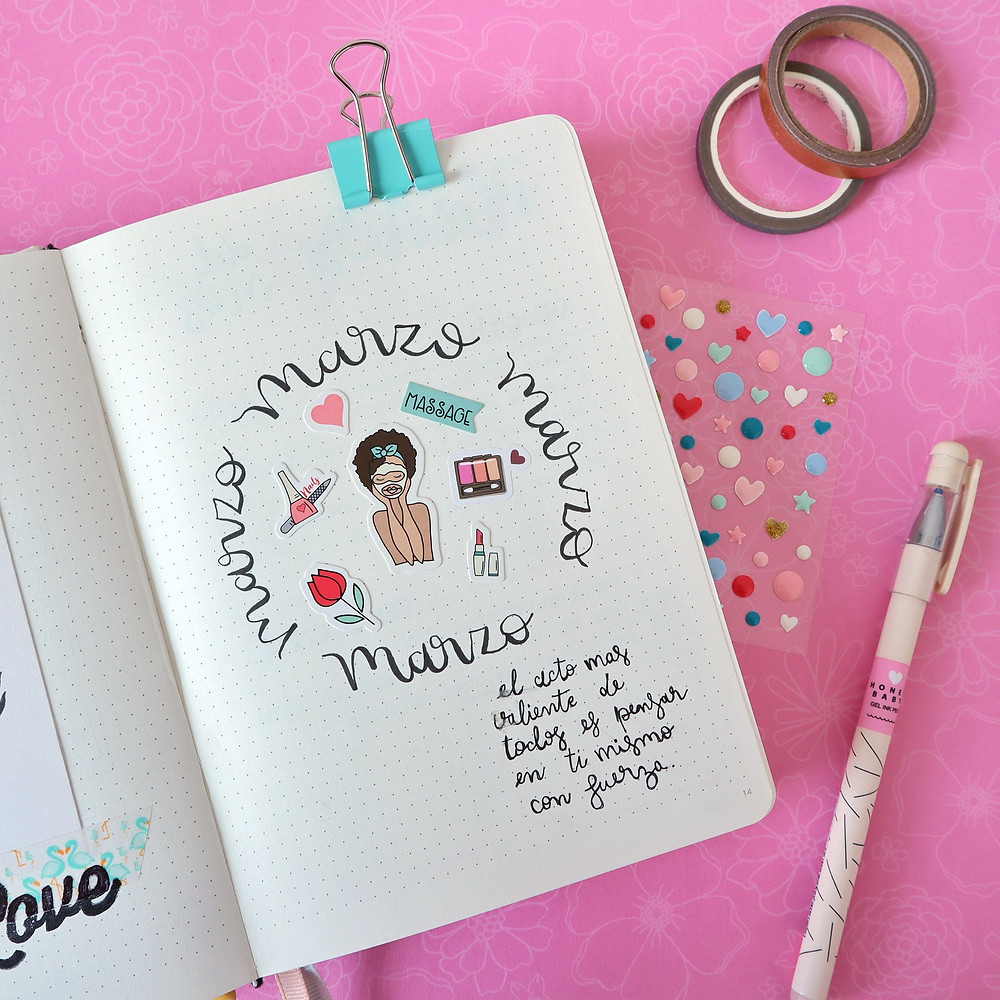 marzo
marzo
marzo
marzo
MASSAGE
Nails
el acto mas
valiente de
todos es pensar
en ti mismo
con fuerza.
14
Love
HONE
BABY
GEL INK PE